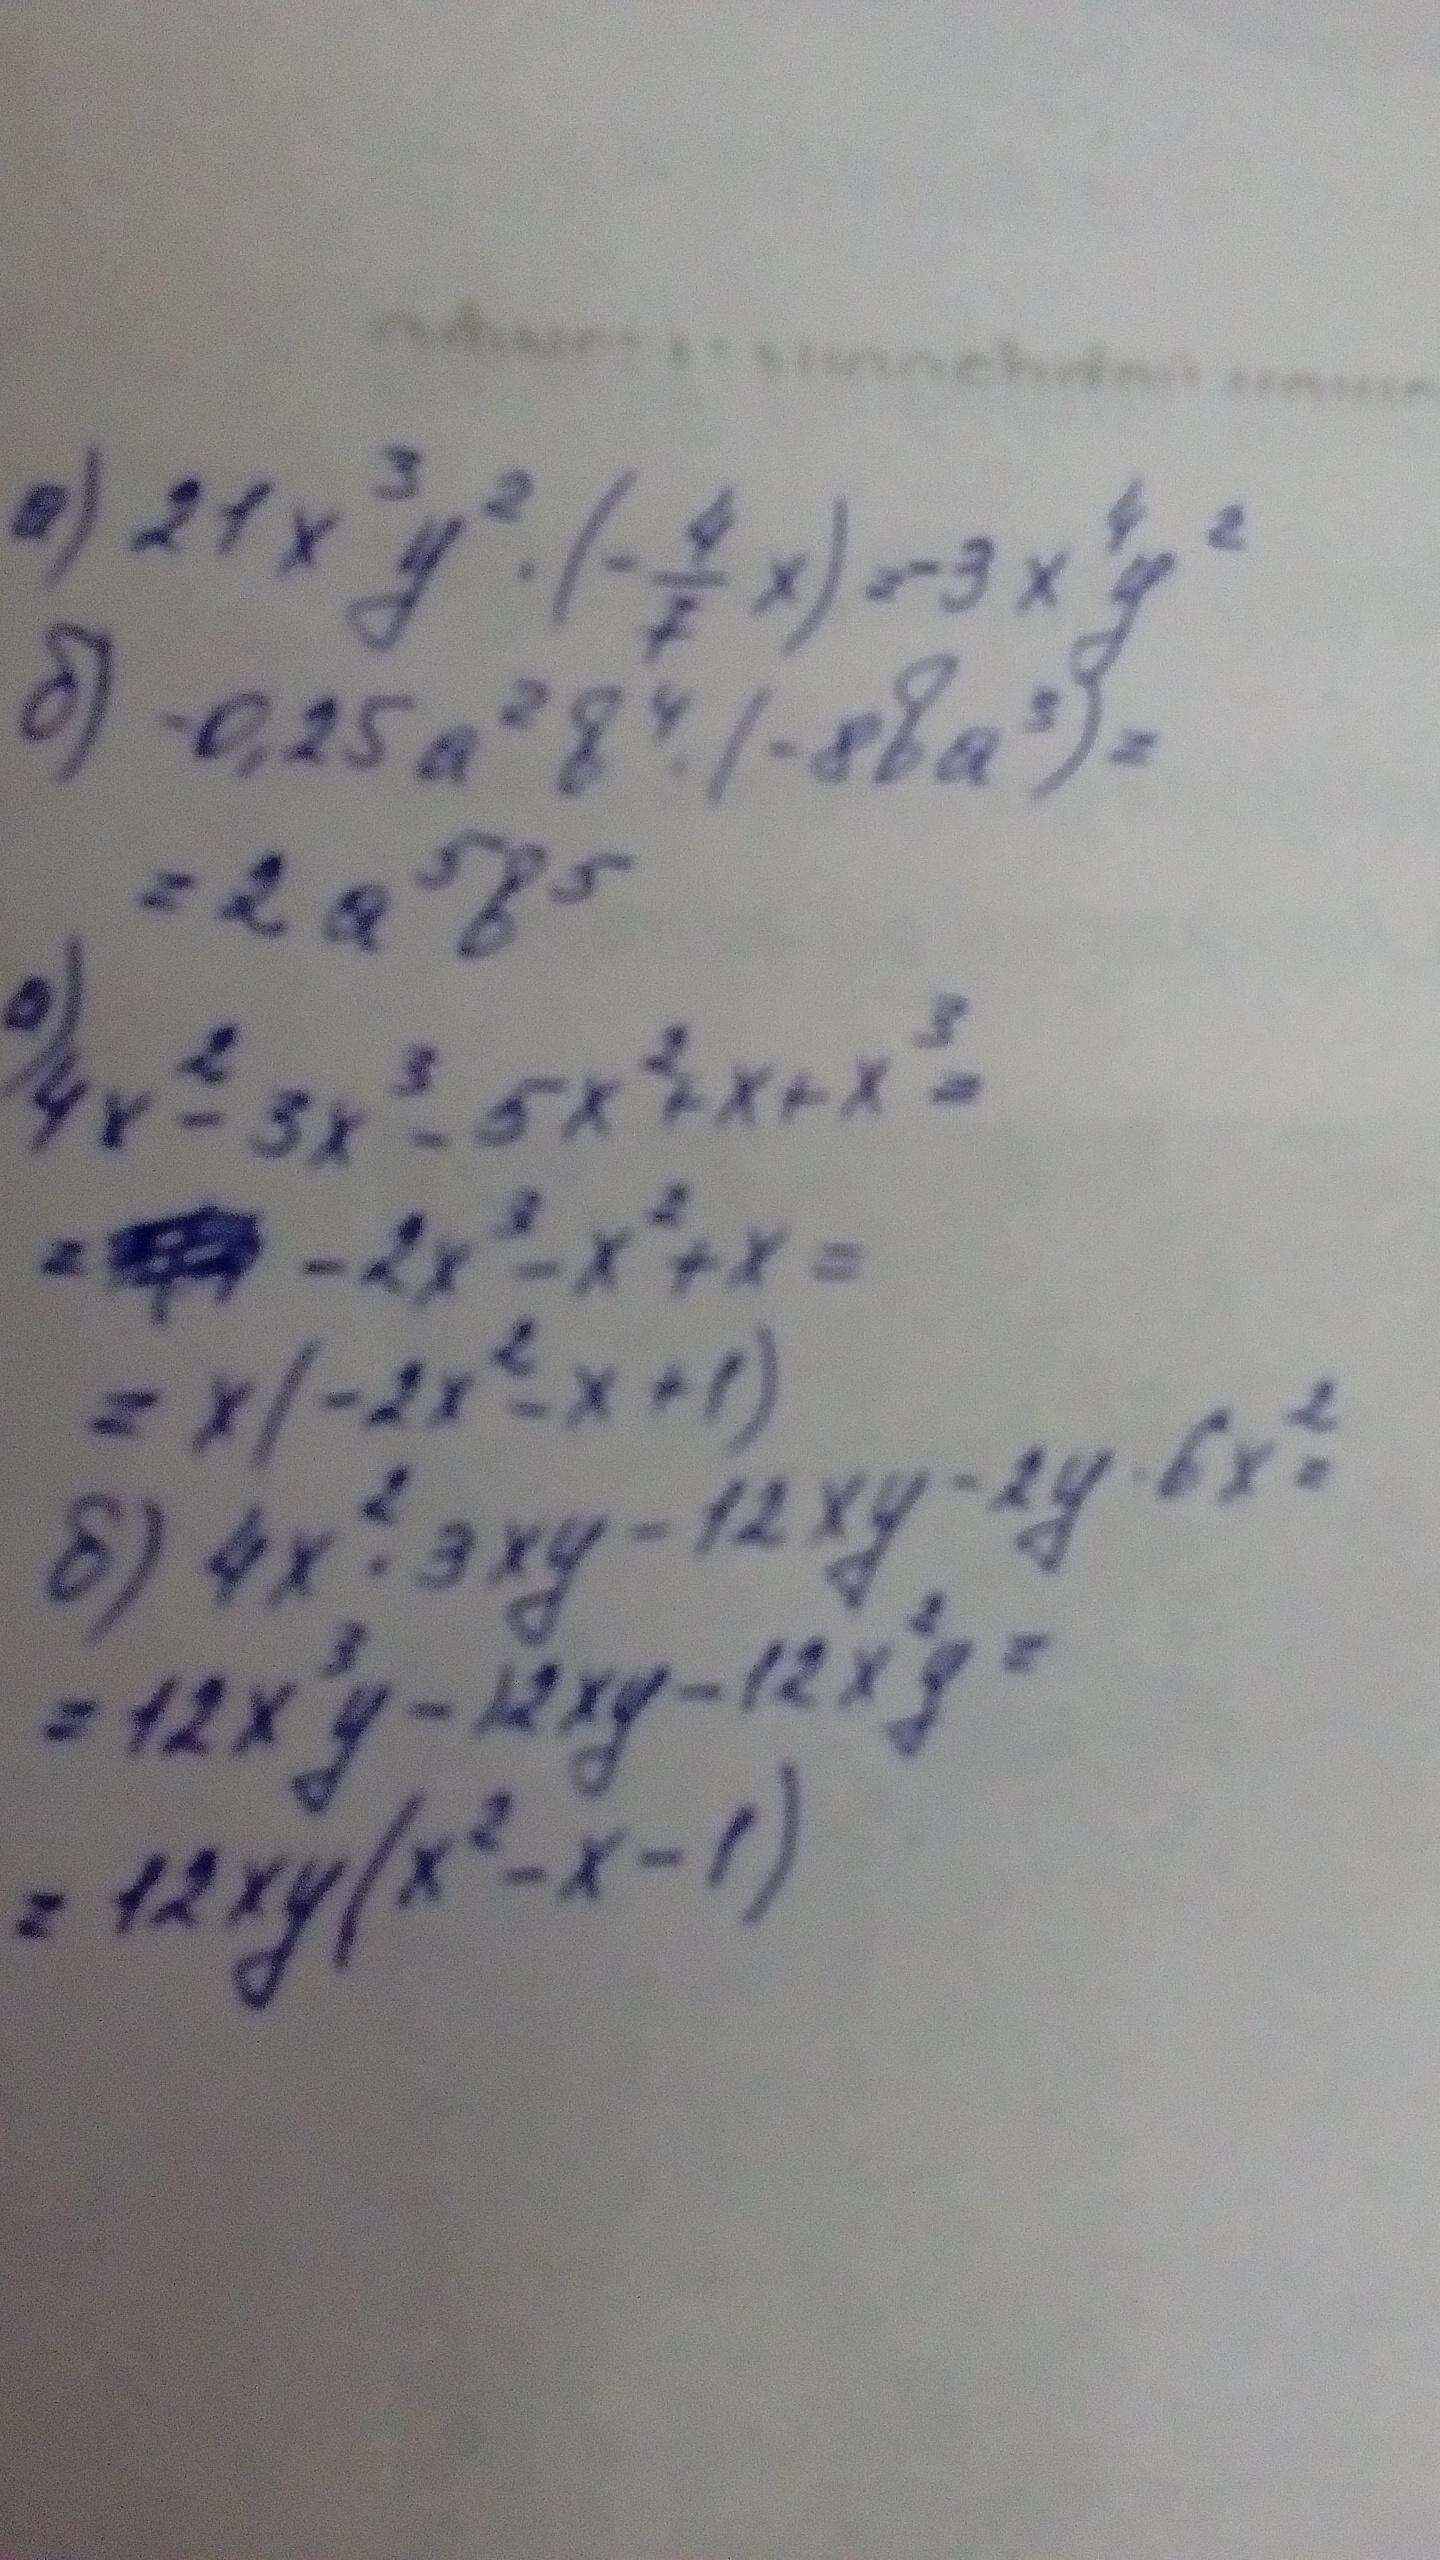 а) 21x³y² · (-4/7 x) = -3x⁴y²
б) -0,25a²b⁴ · (-8ba³) =
= 2a⁵b⁵
а)
4x² - 3x³ - 5x² + x + x³ =
= - 2x³ - x² + x =
= x(-2x² - x + 1)
б) 4x² · 3xy - 12xy - 2y · 6x² =
= 12x³y - 12xy - 12x²y =
= 12xy(x² - x - 1)